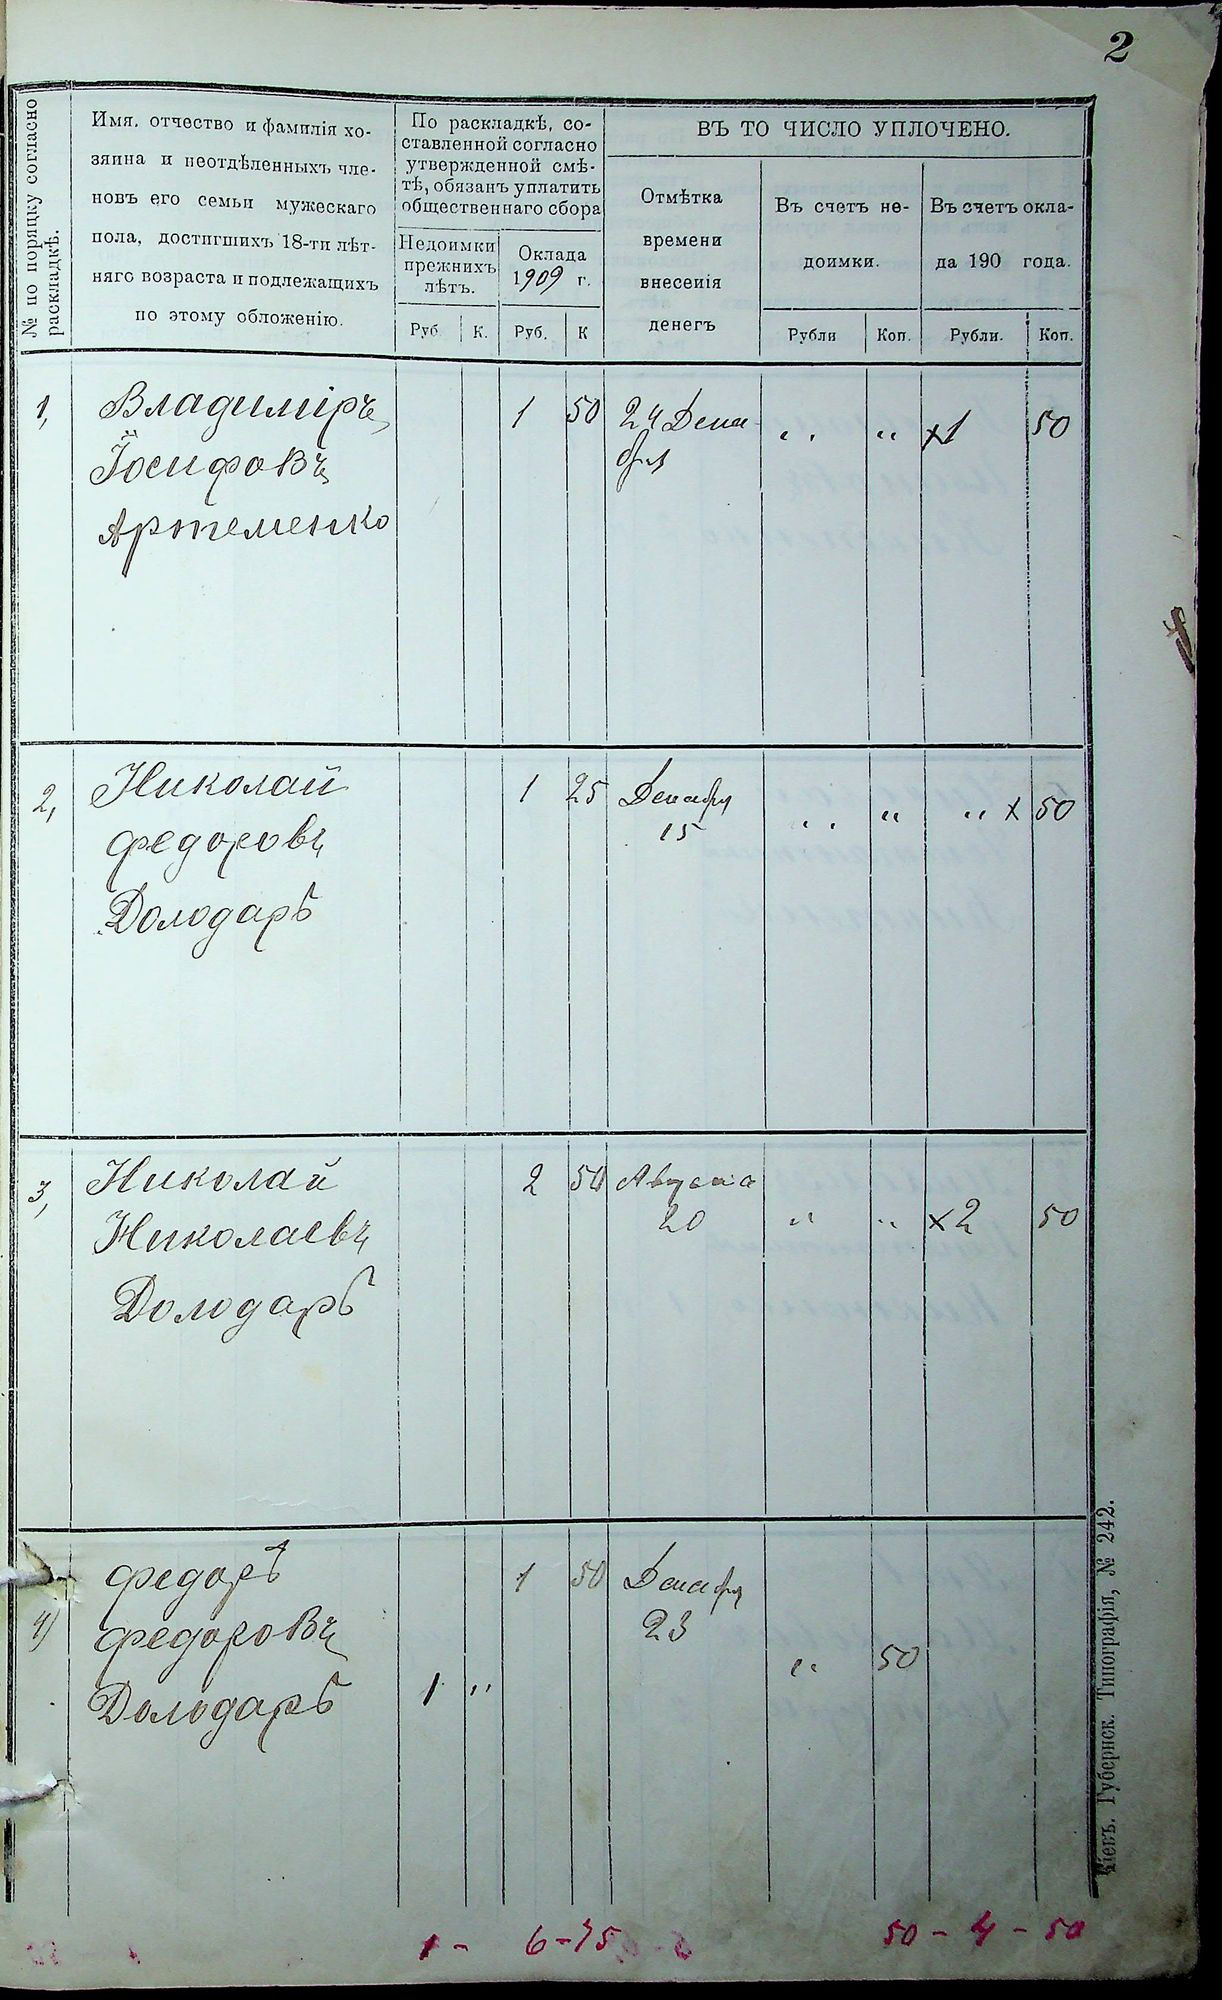 2
№ по порядку согласно
раскладкѣ.
Имя, отчество и фамилія хо-
зяина и неотдѣленныхъ чле-
новъ его семьи мужескаго
пола, достигшихъ 18-ти лѣт-
няго возраста и подлежащихъ
по этому обложенію.
По раскладкѣ, со-
ставленной согласно
утвержденной смѣ-
тѣ, обязанъ уплатить
общественнаго сбора
Недоимки
прежнихъ
лѣтъ.
Оклада
1909 г.
Руб. К. Руб. К
ВЪ ТО ЧИСЛО УПЛОЧЕНО.
Отмѣтка
времени
внесенія
денегъ
Въ счетъ не-
доимки.
Въ счетъ окла-
да 190 года.
Рубли Коп. Рубли. Коп.
1, Владиміръ 1 50 24 Дека- „ „ х1 50
Іосифовъ бря
Артеменко
2, Николай 1 25 Декабря „ „ „ х 50
Федоровъ 15
Долодаръ
3, Николай 2 50 Августа „ „ х2 50
Николаевъ 20
Долодаръ
4) Федоръ 1 50 Декабря
Федоровъ 23 „ 50
Долодаръ 1 „
1 - 6-75 50 - 4 - 50
Кіевъ. Губернск. Типографія, № 242.